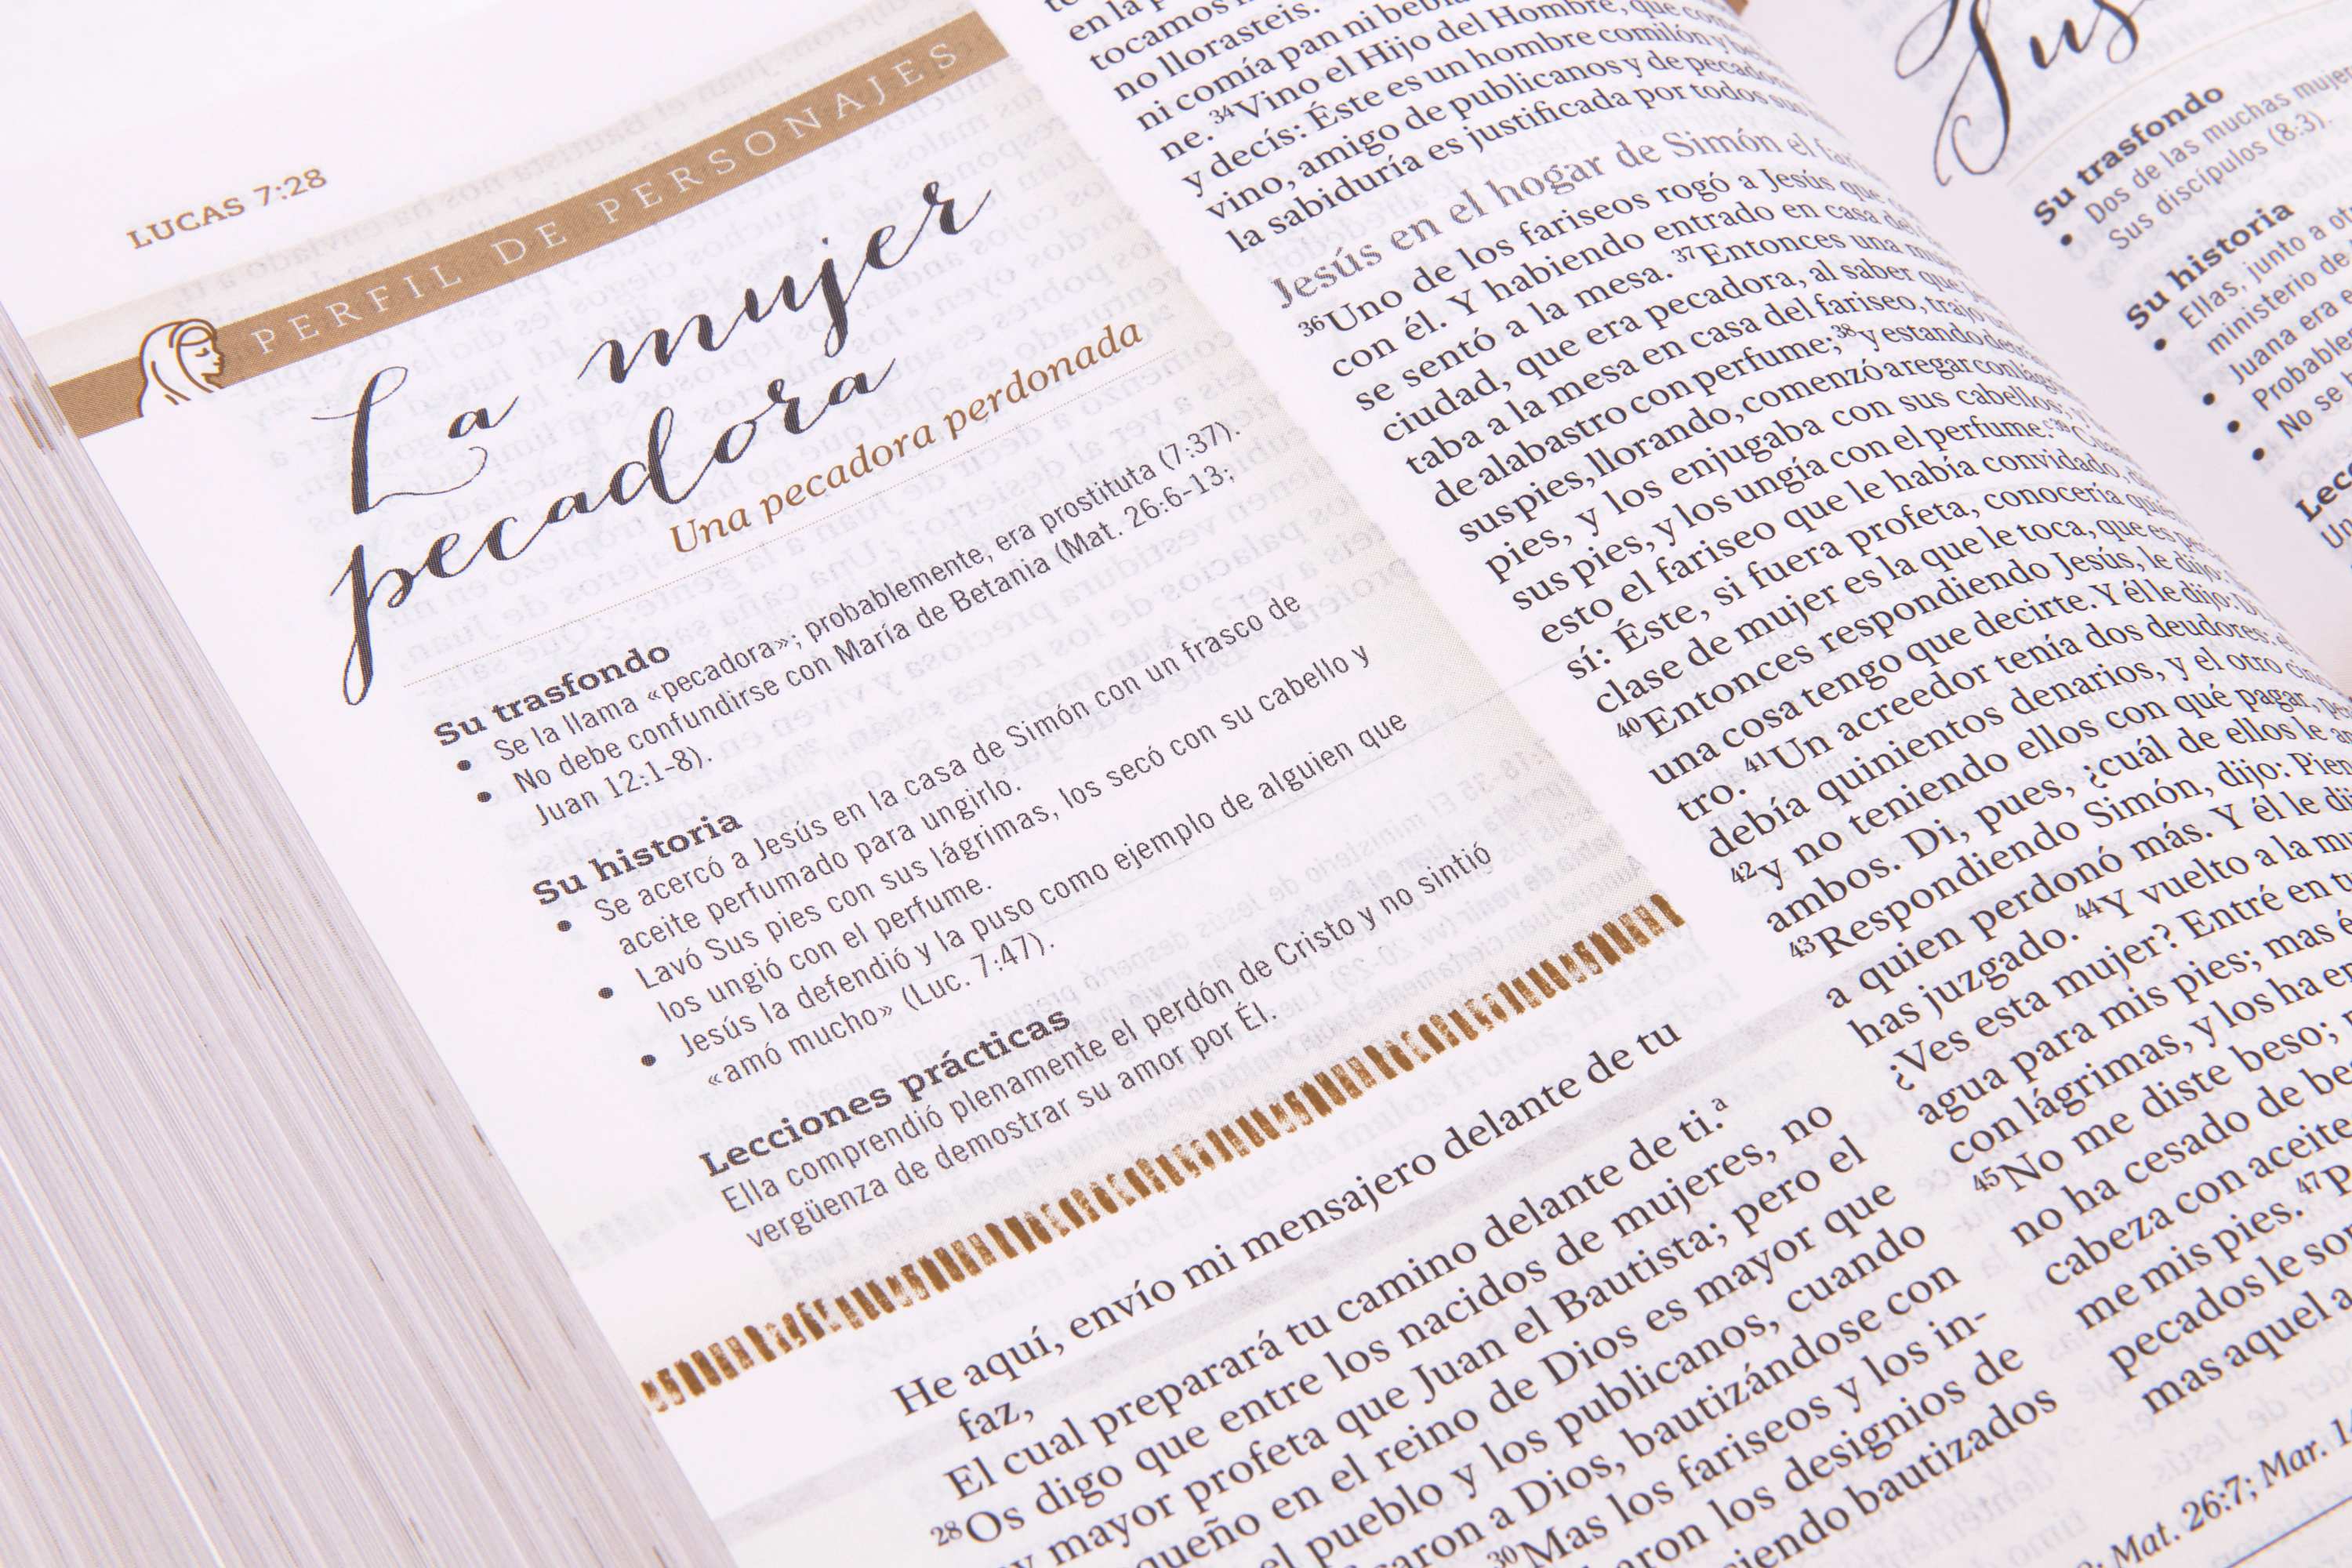 LUCAS 7:28
PERFIL DE PERSONAJES
La mujer
pecadora
Una pecadora perdonada
Su trasfondo
• Se la llama «pecadora»; probablemente, era prostituta (7:37).
• No debe confundirse con María de Betania (Mat. 26:6-13;
Juan 12:1-8).
Su historia
• Se acercó a Jesús en la casa de Simón con un frasco de
aceite perfumado para ungirlo.
• Lavó Sus pies con sus lágrimas, los secó con su cabello y
los ungió con el perfume.
• Jesús la defendió y la puso como ejemplo de alguien que
«amó mucho» (Luc. 7:47).
Lecciones prácticas
Ella comprendió plenamente el perdón de Cristo y no sintió
vergüenza de demostrar su amor por Él.
He aquí, envío mi mensajero delante de tu
faz,
El cual preparará tu camino delante de ti.ª
28Os digo que entre los nacidos de mujeres, no
mayor profeta que Juan el Bautista; pero el
en el reino de Dios es mayor que
el pueblo y los publicanos, cuando
a Dios, bautizándose con
30Mas los fariseos y los in-
los designios de
bautizados
en la
tocamos
no llorasteis.
ni comía pan ni
ne. 34Vino el Hijo del Hombre, que
y decís: Éste es un hombre comilón y
vino, amigo de publicanos y de
la sabiduría es justificada por todos
Jesús en el hogar de Simón el
36Uno de los fariseos rogó a Jesús que
con él. Y habiendo entrado en casa del
se sentó a la mesa. 37Entonces una
ciudad, que era pecadora, al saber que
taba a la mesa en casa del fariseo, trajo
de alabastro con perfume; 38y estando
sus pies, llorando, comenzó a regar con
pies, y los enjugaba con sus cabellos;
sus pies, y los ungía con el perfume.
esto el fariseo que le había convidado,
sí: Éste, si fuera profeta, conocería
clase de mujer es la que le toca, que es
40Entonces respondiendo Jesús, le dijo:
una cosa tengo que decirte. Y él le dijo:
tro. 41Un acreedor tenía dos deudores:
debía quinientos denarios, y el otro
42y no teniendo ellos con qué pagar,
ambos. Di, pues, ¿cuál de ellos le
43Respondiendo Simón, dijo:
a quien perdonó más. Y él le
has juzgado. 44Y vuelto a la
¿Ves esta mujer? Entré en
agua para mis pies; mas
con lágrimas, y los ha
45No me diste beso;
no ha cesado de
cabeza con aceite
me mis pies. 47
pecados le
mas aquel
Mat. 26:7; Mar.
Su trasfondo
• Dos de las muchas
Sus discípulos (8:3).
Su historia
• Ellas, junto a
ministerio de
• Juana era
•
• No se